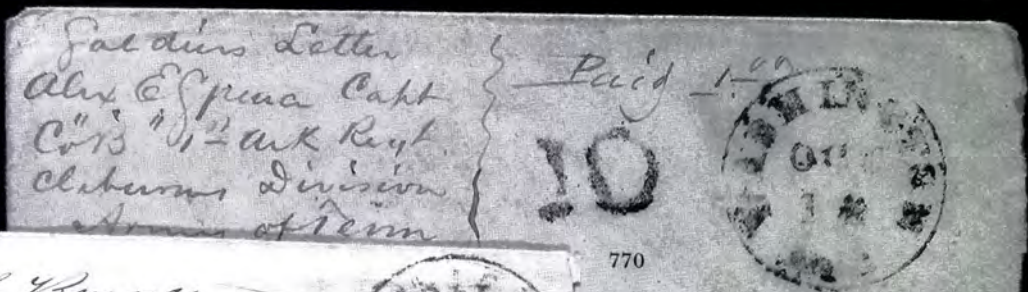 Soldiers Letter
Alex E Spence Capt
Co "B" 1st Ark Regt
Cleburnes Division
Army of Tenn
Paid 1.00
10
WILMINGTON
770